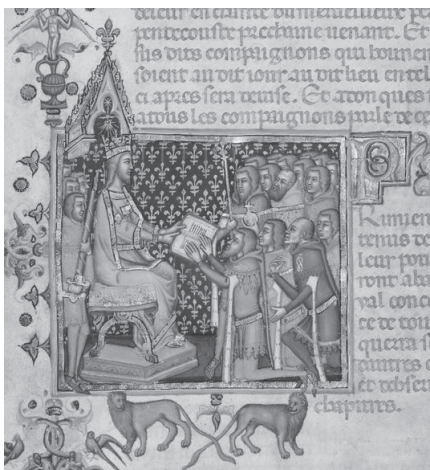 du merueilleux
pentecouste prechaine uenant. Et
sus dits compaignons qui bonnem
soient au dit iour au dit lieu en tel
ci apres sera deuise. Et adonques
atous les compaignons parle de ce
tenus de
leur pou
ront abo
ual conc
ce de tou
queira s
autres c
et dobseu
chapitres.